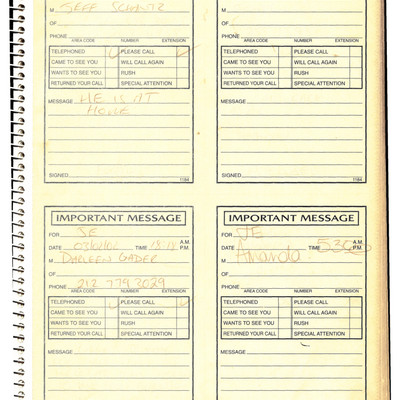 M JEFF SCHANTZ
OF
PHONE
AREA CODE NUMBER EXTENSION
TELEPHONED PLEASE CALL
CAME TO SEE YOU WILL CALL AGAIN
WANTS TO SEE YOU RUSH
RETURNED YOUR CALL SPECIAL ATTENTION
MESSAGE HE IS AT
HOME
SIGNED
1184
M
OF
PHONE
AREA CODE NUMBER EXTENSION
TELEPHONED PLEASE CALL
CAME TO SEE YOU WILL CALL AGAIN
WANTS TO SEE YOU RUSH
RETURNED YOUR CALL SPECIAL ATTENTION
MESSAGE
SIGNED
1184
IMPORTANT MESSAGE
FOR JE
DATE TIME A.M. P.M.
M DARLEEN GADER
OF
PHONE 212 779 2029
AREA CODE NUMBER EXTENSION
TELEPHONED PLEASE CALL
CAME TO SEE YOU WILL CALL AGAIN
WANTS TO SEE YOU RUSH
RETURNED YOUR CALL SPECIAL ATTENTION
MESSAGE
IMPORTANT MESSAGE
FOR JE
DATE TIME 530 A.M. P.M.
M Amanda
OF
PHONE
AREA CODE NUMBER EXTENSION
TELEPHONED PLEASE CALL
CAME TO SEE YOU WILL CALL AGAIN
WANTS TO SEE YOU RUSH
RETURNED YOUR CALL SPECIAL ATTENTION
MESSAGE